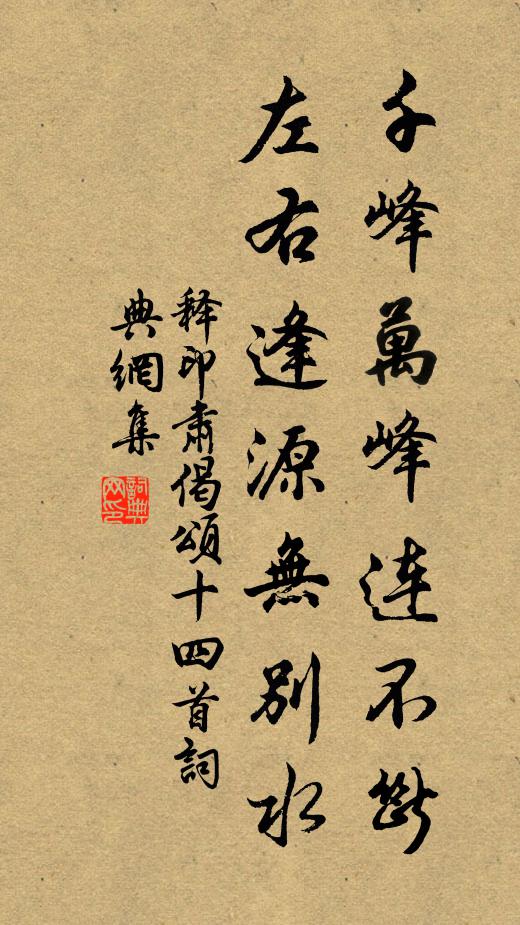 千峰萬峰連不斷
左右逢源無別水
释印肅偈頌十四首詞
典網集
詞典網印